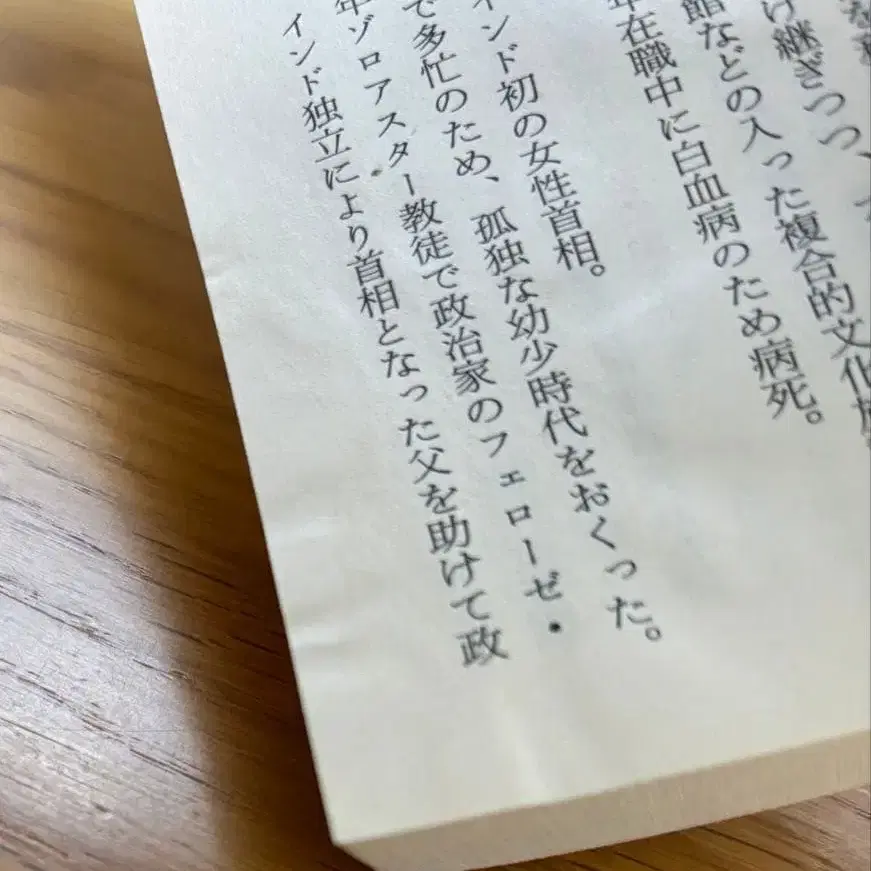 け継ぎつつ、
館などの入った複合的文化施
年在職中に白血病のため病死。
インド初の女性首相。
で多忙のため、孤独な幼少時代をおくった。
年ゾロアスター教徒で政治家のフェローゼ・
インド独立により首相となった父を助けて政